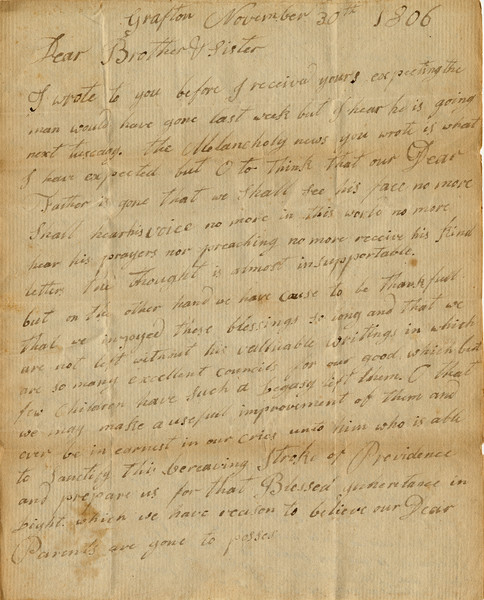 Grafton November 30th 1806
Dear Brother & Sister
I wrote to you before I received yours expecting the
man would have gone last week but I hear he is going
next tuesday. the Melancholy news you wrote is what
I have expected but O to think that our Dear
Father is gone that we shall see his face no more
Shall hear his voice no more in this world no more
hear his prayers nor preaching no more receive his kind
letters the thought is almost insupportable.
but on the other hand we have cause to be thankfull
that we injoyed those blessings so long and that we
are not left without his valluable writings in which
are so many excellent councils for our good, which but
few Children have such a Legasy left them. O that
we may make a useful improviment of them and
ever be in earnest in our cries unto him who is able
to Sanctify this bereaving Stroke of Providence
and prepare us for that Blessed inheritance in
Light. which we have reason to believe our Dear
Parents are gone to posses